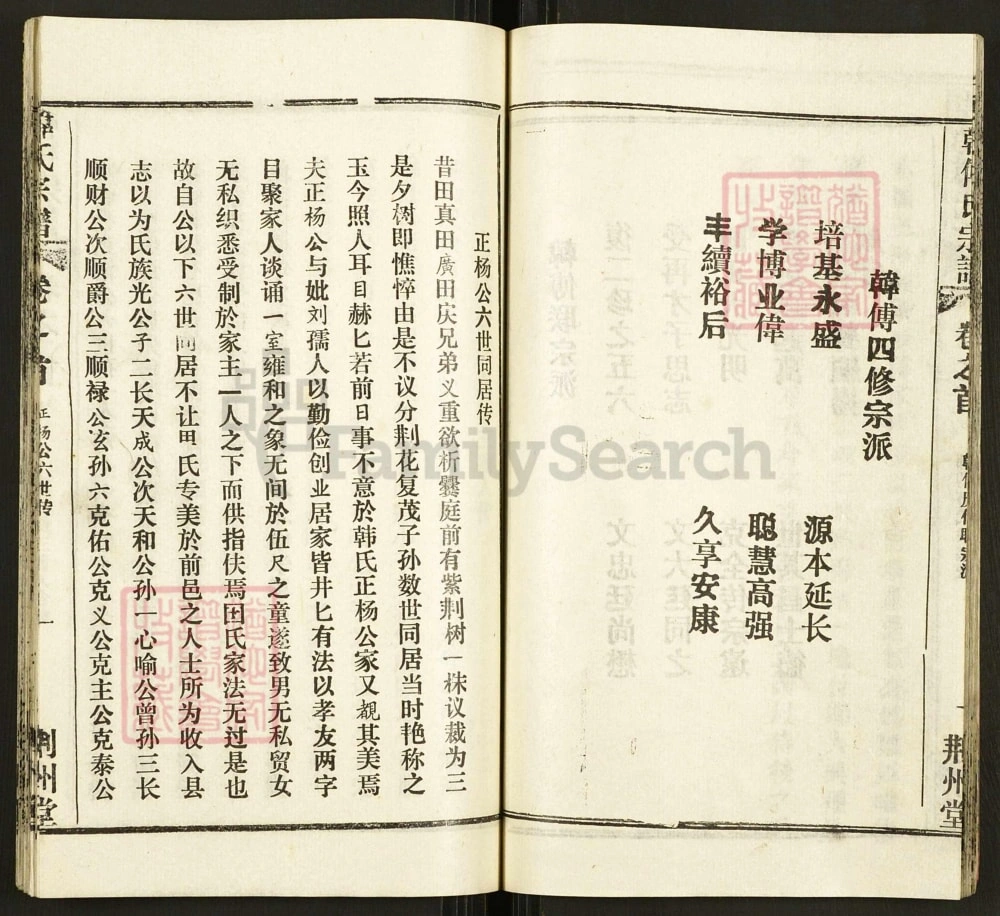 韓傅氏宗譜 卷之首
荆州堂
韓傅四修宗派
培基永盛 源本延长
学博业偉 聪慧高强
丰續裕后 久享安康
正杨公六世同居传
昔田真田廣田庆兄弟义重欲析爨庭前有紫荆树一株议裁为三
是夕树即憔悴由是不议分荆花复茂子孙数世同居当时艳称之
玉今照人耳目赫匕若前日事不意於韩氏正杨公家又覩其美焉
夫正杨公与妣刘孺人以勤俭创业居家皆井匕有法以孝友两字
目聚家人谈诵一室雍和之象无间於伍尺之童遂致男无私贸女
无私织悉受制於家主一人之下而供指伕焉田氏家法无过是也
故自公以下六世同居不让田氏专美於前邑之人士所为收入县
志以为氏族光公子二长天成公次天和公孙一心喻公曾孙三长
顺财公次顺爵公三顺禄公玄孙六克佑公克义公克主公克泰公
氏宗譜 卷之首 正杨公六世传 一
荆州堂
FamilySearch